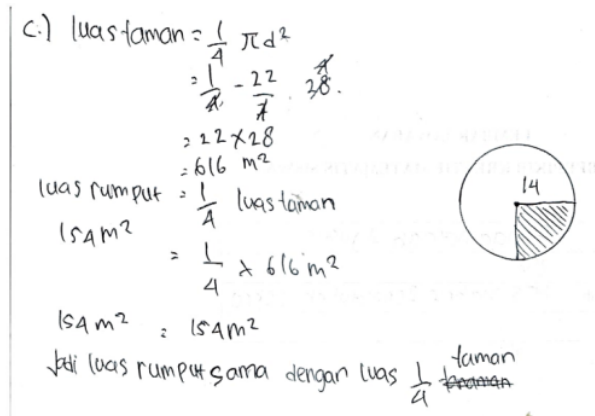 c.) luas taman = 1/4 πd²
= 1/4 - 22/7 . 28.
= 22 x 28
= 616 m²
luas rumput = 1/4 luas taman
154 m²
= 1/4 x 616 m²
154 m² = 154 m²
Jadi luas rumput sama dengan luas 1/4 taman
14